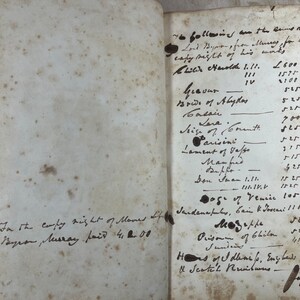 For the copy right of Moores Life
Byron, Murray paid £4200
The following are the sums
Lord Byron from Murray for
copy right of his works
Childe Harold I.II. £600
III 1575
IV 2100
Giaour 525
Bride of Abydos 525
Corsair 525
Lara 700
Siege of Corinth 525
Parisina 525
Lament of Tasso 315
Manfred 315
Beppo 525
Don Juan I.II. 1525
III.IV.V 1525
Doge of Venice 105
Sardanapalus, Cain & Foscari 110
Mazeppa 525
Prisoner of Chillon 525
Sundries
Hours of Idleness, English
& Scotch Reviewers